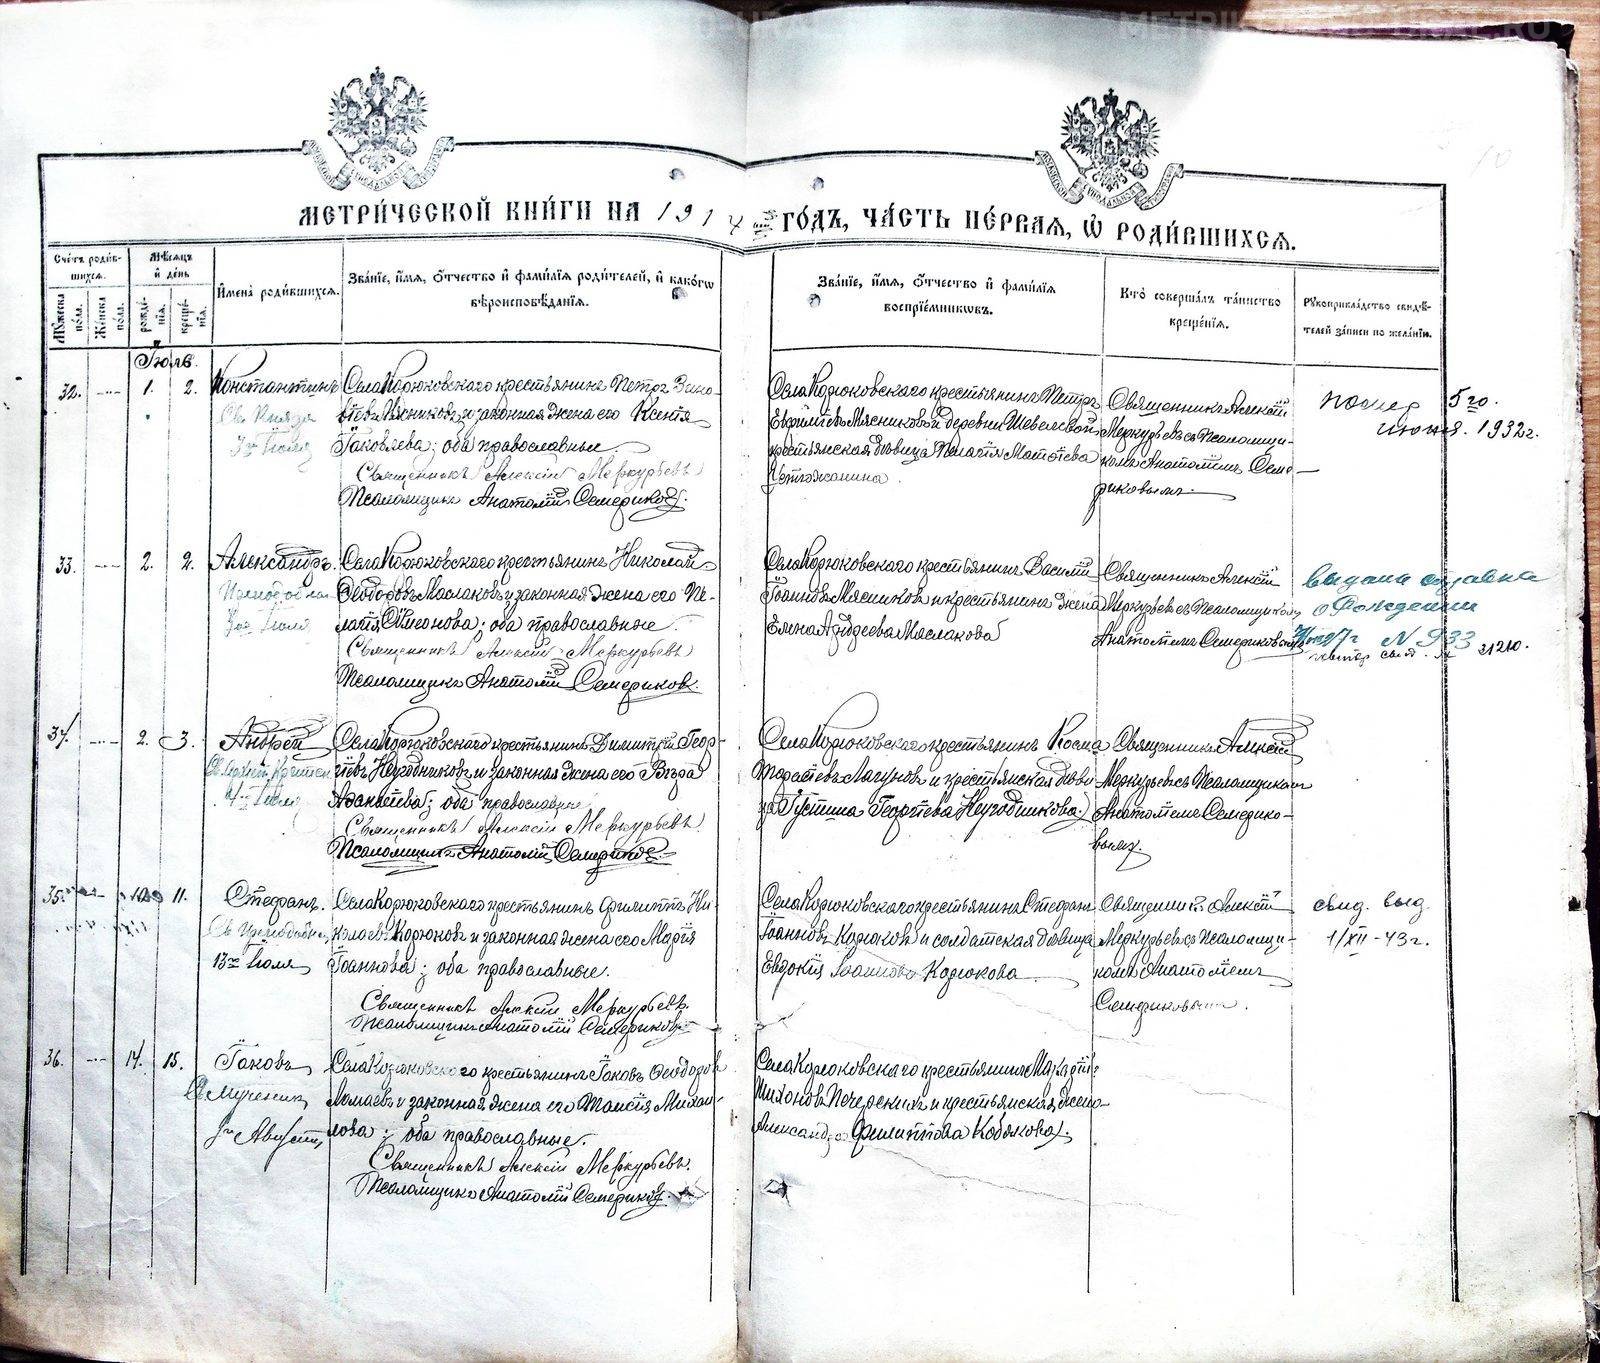 МЕТРИ́ЧЕСКОЙ КНИ́ГИ НА 1914 ГО́ДЪ, ЧА́СТЬ ПЕ́РВАЯ, Ѡ РОДИ́ВШИХСЯ.
Сче́тъ роди́в-
шихся.
Му́жеска по́ла.
Же́нска по́ла.
Мѣ́сяцъ и де́нь
рожде́нія.
креще́нія.
И́мена роди́вшихся.
Зва́ніе, и́мя, о́тчество и фами́лія роди́телей, и како́гѡ
вѣроисповѣ́данія.
Зва́ніе, и́мя, о́тчество и фами́лія
воспріе́мникѡвъ.
Кто̀ соверша́лъ та́инство
креще́нія.
Рукоприкла́дство свидѣ́-
телей за́писи по жела́нію.
Іюль.
32. 1. 2. Константинъ
Св. Князя
3го Іюля
Села Корюковскаго крестьянинъ Петръ Зино-
вьевъ Мясниковъ и законная жена его Ксенія
Іаковлева; оба православные.
Священникъ Алексій Меркурьевъ
Псаломщикъ Анатолій Семериковъ.
Села Корюковскаго крестьянинъ Петръ
Евфиміевъ Мясниковъ и деревни Шевелевой
крестьянская дѣвица Пелагія Матѳіева
Священникъ Алексій
Меркурьевъ съ Псаломщи-
комъ Анатоліемъ Семе-
риковымъ.
5го
июня. 1932г.
33. 2. 2. Александръ.
Преподобнаго
Іюля
Села Корюковскаго крестьянинъ Николай
Ѳеодоровъ Маслаковъ и законная жена его Пе-
лагія Симеонова; оба православные.
Священникъ Алексій Меркурьевъ
Псаломщикъ Анатолій Семериковъ.
Села Корюковскаго крестьянинъ Василій
Іоанновъ Мясниковъ и крестьянина жена
Елена Андреева Маслакова
Священникъ Алексій
Меркурьевъ съ Псаломщикомъ
Анатоліемъ Семериковымъ
выдана справка
о Рождении
N 933
31210.
34. 2. 3. Андрей
4го Іюля
Села Корюковскаго крестьянинъ Димитрій Геор-
гіевъ Негодниковъ и законная жена его Вѣра
оба православные
Священникъ Алексій Меркурьевъ
Псаломщикъ Анатолій Семериковъ.
Села Корюковскаго крестьянинъ Косма
Тарасіевъ Лагуновъ и крестьянская дѣви-
ца Іустина Георгіева Негодникова.
Священникъ Алексій
Меркурьевъ съ Псаломщикомъ
Анатоліемъ Семерико-
вымъ.
35. 10. 11. Стефанъ.
Св. Преподобнаго
13го Іюля
Села Корюковскаго крестьянинъ Филиппъ Ни-
колаевъ Корюковъ и законная жена его Марія
Іоаннова; оба православные.
Священникъ Алексій Меркурьевъ.
Псаломщикъ Анатолій Семериковъ
Села Корюковскаго крестьянинъ Стефанъ
Іоанновъ Корюковъ и солдатская дѣвица
Евдокія Іоаннова Корюкова
Священникъ Алексій
Меркурьевъ съ Псаломщи-
комъ Анатоліемъ
Семериковымъ.
свид. выд.
1/XII-43г.
36. 14. 15. Іаковъ
Мученика
Августа
Села Корюковскаго крестьянинъ Іаковъ Ѳеодоров
Ломаевъ и законная жена его Таисія Михаи-
лова; оба православные.
Священникъ Алексій Меркурьевъ.
Псаломщикъ Анатолій Семериковъ.
Села Корюковскаго крестьянинъ Макарій
Тихоновъ Печерскихъ и крестьянская жена
Александра Филиппова Кобякова.